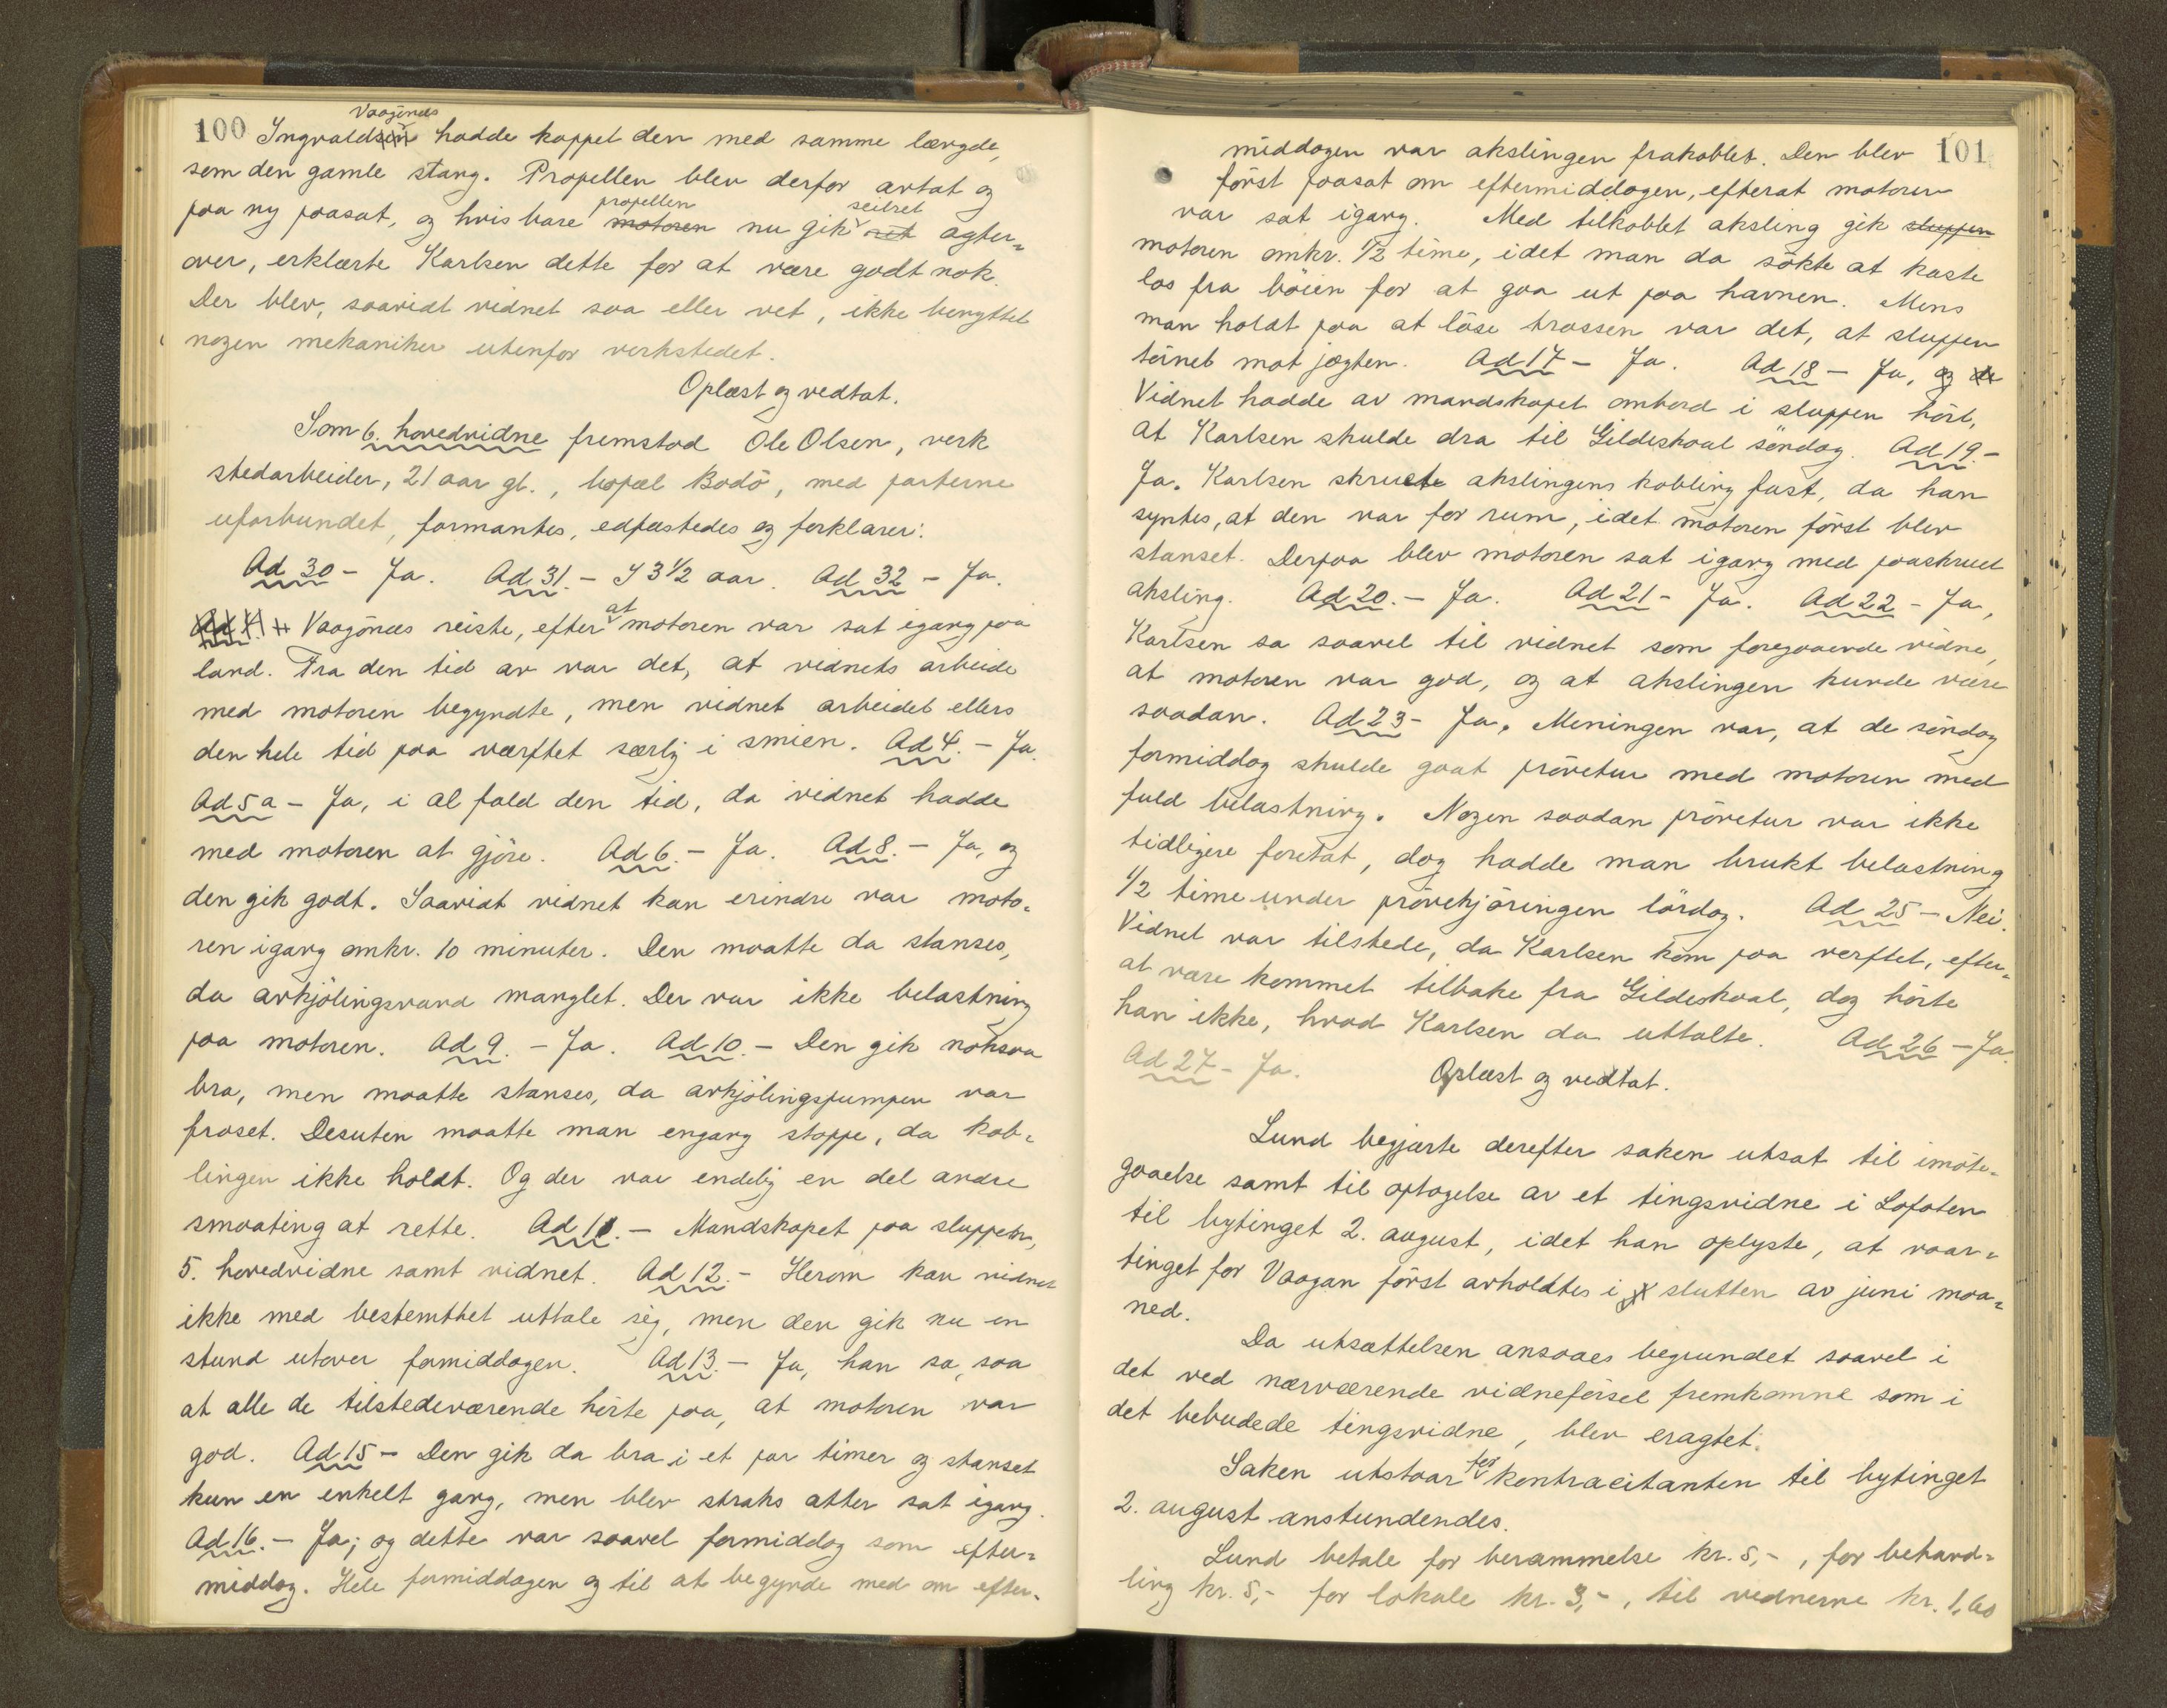 100 Ingvaldsen Vaagönes hadde kappet den med samme længde,
som den gamle stang. Propellen blev derfor avtat og
paa ny paasat, og hvis bare motoren propellen nu gik seilret agter-
over, erklærte Karlsen dette for at være godt nok.
Der blev, saavidt vidnet saa eller vet, ikke benyttet
nogen mekaniker utenfor verkstedet.
Oplæst og vedtat.
Som 6. hovedvidne fremstod Ole Olsen, verk
stedarbeider, 21 aar gl., bopæl Bodö, med parterne
uforbundet, formantes, edfæstedes og forklarer:
Ad 30 - Ja. Ad 31. - I 3 1/2 aar. Ad 32 - Ja.
Vaagönes reiste, efter at motoren var sat igang paa
land. Fra den tid av var det, at vidnets arbeide
med motoren begyndte, men vidnet arbeidet ellers
den hele tid paa værftet særlig i smien. Ad 4. - Ja.
Ad 5a - Ja, i al fald den tid, da vidnet hadde
med motoren at gjöre. Ad 6. - Ja. Ad 8. - Ja, og
den gik godt. Saavidt vidnet kan erindre var moto-
ren igang omkr. 10 minuter. Den maatte da stanses,
da avkjölingsvand manglet. Der var ikke belastning
paa motoren. Ad 9. - Ja. Ad 10. - Den gik noksaa
bra, men maatte stanses, da avkjölingspumpen var
froset. Desuten maatte man engang stoppe, da kob-
lingen ikke holdt. Og der var endelig en del andre
smaating at rette. Ad 11. - Mandskapet paa sluppen,
5. hovedvidne samt vidnet. Ad 12. - Herom kan vidnet
ikke med bestemthet uttale sig, men den gik nu en
stund utover formiddagen. Ad 13. - Ja, han sa, saa
at alle de tilstedeværende hörte paa, at motoren var
god. Ad 15 - Den gik da bra i et par timer og stanset
kun en enkelt gang, men blev straks atter sat igang.
Ad 16. - Ja; og dette var saavel formiddag som efter-
middag. Hele formiddagen og til at begynde med om efter-
middagen var akslingen frakoblet. Den blev 101
först paasat om eftermiddagen, efterat motoren
var sat igang. Med tilkoblet aksling gik sluppen
motoren omkr. 1/2 time, idet man da sökte at kaste
los fra böien for at gaa ut paa havnen. Mens
man holdt paa at löse trossen var det, at sluppen
törnet mot jægten. Ad 17 - Ja. Ad 18 - Ja, og
Vidnet hadde av mandskapet ombord i sluppen hört,
at Karlsen skulde dra til Gildeskaal söndag. Ad 19. -
Ja. Karlsen skruete akslingens kobling fast, da han
syntes, at den var for rum, idet motoren först blev
stanset. Derpaa blev motoren sat igang med paaskrued
aksling. Ad 20. - Ja. Ad 21 - Ja. Ad 22 - Ja,
Karlsen sa saavel til vidnet som foregaaende vidne,
at motoren var god, og at akslingen kunde være
saadan. Ad 23 - Ja. Meningen var, at de söndag
formiddag skulde gaat prövetur med motoren med
fuld belastning. Nogen saadan prövetur var ikke
tidligere foretat, dog hadde man brukt belastning
1/2 time under prövekjöringen lördag. Ad 25 - Nei.
Vidnet var tilstede, da Karlsen kom paa verftet, efter-
at være kommet tilbake fra Gildeskaal, dog hörte
han ikke, hvad Karlsen da uttalte. Ad 26 - Ja.
Ad 27 - Ja. Oplæst og vedtat.
Lund begjærte derefter saken utsat til imöte-
gaaelse samt til optagelse av et tingsvidne i Lofoten
til bytinget 2. august, idet han oplyste, at vaar-
tinget for Vaagan först avholdtes i slutten av juni maa-
ned.
Da utsættelsen ansaaes begrundet saavel i
det ved nærværende vidneförsel fremkomne som i
det bebudede tingsvidne, blev eragtet:
Saken utstaar for kontracitanten til bytinget
2. august anstundendes.
Lund betale for berammelse kr. 5,-, for behand-
ling kr. 5,- for lokale kr. 3,-, til vednerne kr. 1,60